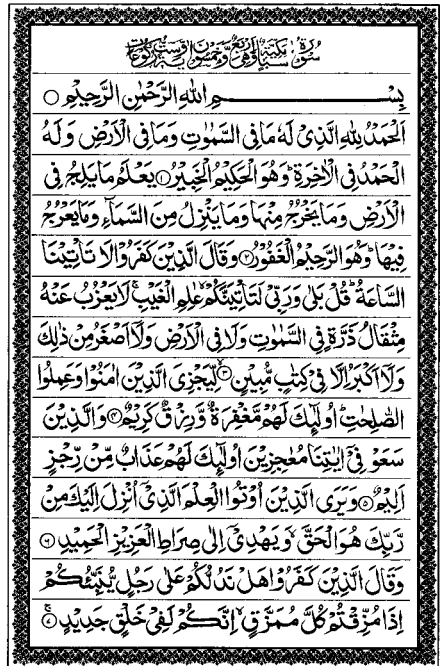 سُوْرَةُ سَبَاٍ مَكِّيَّةٌ وَّهِىَ اَرْبَعٌ وَّخَمْسُوْنَ اٰيَةً وَّسِتُّ رُكُوْعَاتٍ
بِسْــــــمِ اللهِ الرَّحْمٰنِ الرَّحِيْمِ ○
اَلْحَمْدُ لِلّٰهِ الَّذِىْ لَهٗ مَا فِى السَّمٰوٰتِ وَمَا فِى الْاَرْضِ وَلَهُ
الْحَمْدُ فِى الْاٰخِرَةِ ؕ وَهُوَ الْحَكِيْمُ الْخَبِيْرُ ۝۱ يَعْلَمُ مَا يَلِجُ فِى
الْاَرْضِ وَمَا يَخْرُجُ مِنْهَا وَمَا يَنْزِلُ مِنَ السَّمَآءِ وَمَا يَعْرُجُ
فِيْهَا ؕ وَهُوَ الرَّحِيْمُ الْغَفُوْرُ ۝۲ وَقَالَ الَّذِيْنَ كَفَرُوْا لَا تَاْتِيْنَا
السَّاعَةُ ؕ قُلْ بَلٰى وَرَبِّىْ لَتَاْتِيَنَّكُمْ ۙ عٰلِمِ الْغَيْبِ ۚ لَا يَعْزُبُ عَنْهُ
مِثْقَالُ ذَرَّةٍ فِى السَّمٰوٰتِ وَلَا فِى الْاَرْضِ وَلَاۤ اَصْغَرُ مِنْ ذٰلِكَ
وَلَاۤ اَكْبَرُ اِلَّا فِىْ كِتٰبٍ مُّبِيْنٍ ۝۳ لِّيَجْزِىَ الَّذِيْنَ اٰمَنُوْا وَعَمِلُوا
الصّٰلِحٰتِ ؕ اُولٰٓئِكَ لَهُمْ مَّغْفِرَةٌ وَّرِزْقٌ كَرِيْمٌ ۝۴ وَالَّذِيْنَ
سَعَوْ فِىْۤ اٰيٰتِنَا مُعٰجِزِيْنَ اُولٰٓئِكَ لَهُمْ عَذَابٌ مِّنْ رِّجْزٍ
اَلِيْمٌ ۝۵ وَيَرَى الَّذِيْنَ اُوْتُوا الْعِلْمَ الَّذِىْۤ اُنْزِلَ اِلَيْكَ مِنْ
رَّبِّكَ هُوَ الْحَقَّ ۙ وَيَهْدِىْۤ اِلٰى صِرَاطِ الْعَزِيْزِ الْحَمِيْدِ ۝۶
وَقَالَ الَّذِيْنَ كَفَرُوْا هَلْ نَدُلُّكُمْ عَلٰى رَجُلٍ يُّنَبِّئُكُمْ
اِذَا مُزِّقْتُمْ كُلَّ مُمَزَّقٍ ۙ اِنَّكُمْ لَفِىْ خَلْقٍ جَدِيْدٍ ۝۷